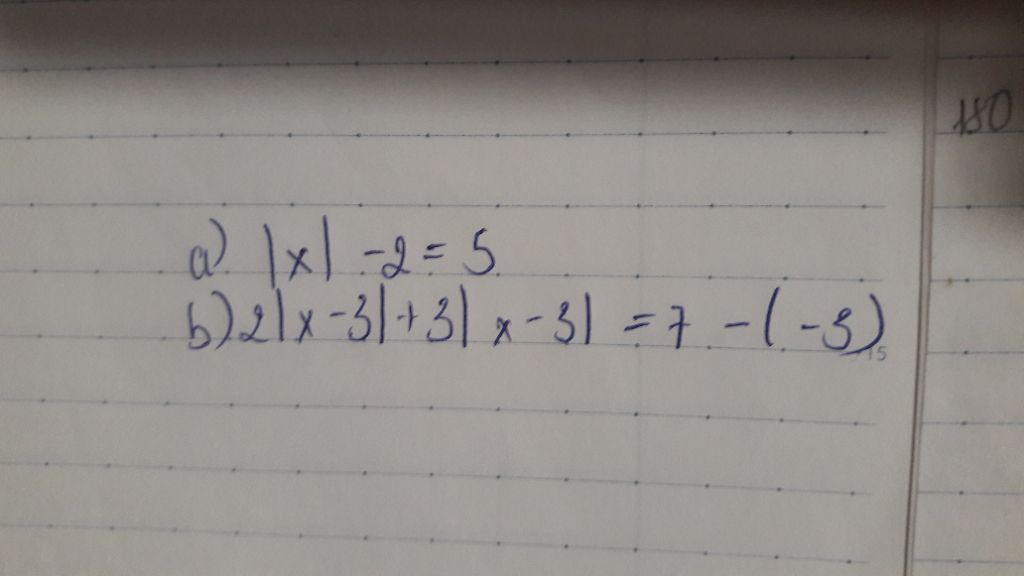 180
a) |x| - 2 = 5
b) 2|x - 3| + 3| x - 3| = 7 - ( - 3)
15